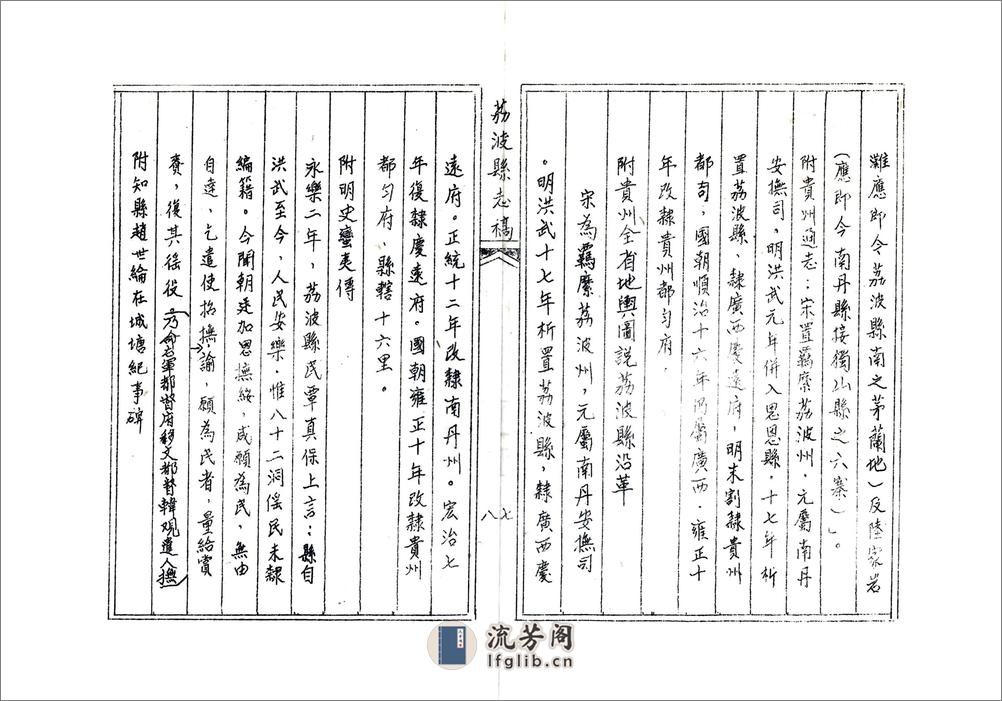 灘應即今荔波縣南之茅蘭地）及陸家岩
（應即今南丹縣接獨山縣之六寨）」。
附貴州通志：宋置羈縻荔波州，元屬南丹
安撫司，明洪武元年併入思恩縣，十七年析
置荔波縣、隸廣西慶遠府，明末割隸貴州
都司，國朝順治十六年仍屬廣西．雍正十
年改隸貴州都勻府．
附貴州全省地輿圖說荔波縣沿革
宋為羈縻荔波州，元屬南丹安撫司
。明洪武十七年析置荔波縣，隸廣西慶
荔波縣志稿
八七
遠府。正統十二年改隸南丹州。宏治七
年復隸慶遠府。國朝雍正十年改隸貴州
都勻府，縣轄十六里。
附明史蠻夷傳
永樂二年，荔波縣民覃真保上言：縣自
洪武至今，人民安樂．惟八十二洞傜民未隸
編籍。今聞朝廷加恩撫綏，咸願為民，無由
自達，乞遣使招撫→諭，願為民者，量給賞
賚，復其徭役。（乃命右軍都督府移文都督韓觀遣人撫）
附知縣趙世綸在城塘紀事碑
流芳阁
lfglib.cn